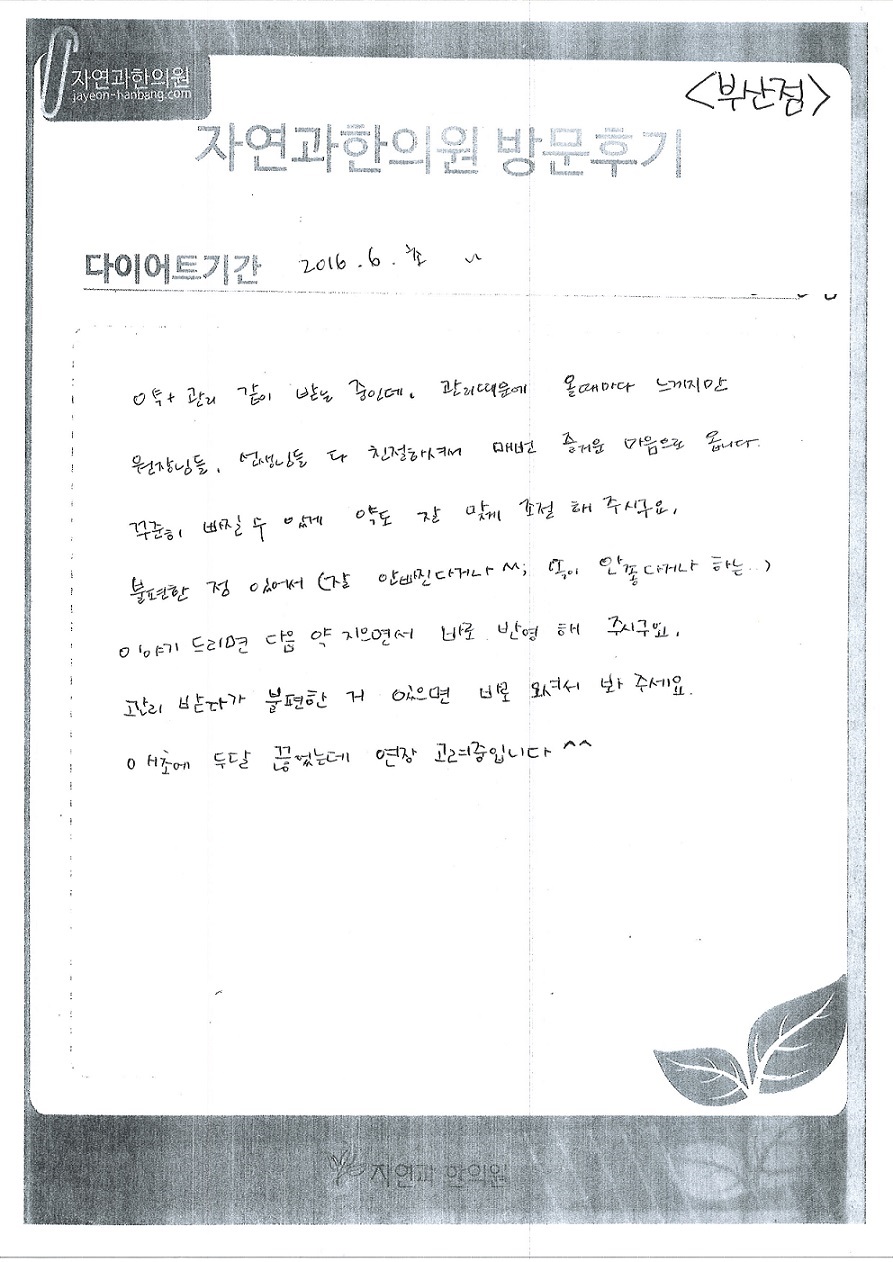 자연과한의원
jayeon-hanbang.com
<부산점>
자연과한의원 방문후기
다이어트기간 2016.6.초 ~
약+관리 같이 받는 중인데, 관리때문에 올때마다 느끼지만
원장님들, 선생님들 다 친절하셔서 매번 즐거운 마음으로 옵니다.
꾸준히 빠질 수 있게 약도 잘 맞게 조절 해 주시구요,
불편한 점 있어서 (잘 안빠진다거나 ^^; 속이 안좋다거나 하는..)
이야기 드리면 다음 약 지으면서 바로 반영 해 주시구요,
관리 받다가 불편한 거 있으면 바로 오셔서 봐 주세요.
애초에 두달 끊었는데 연장 고려중입니다 ^^
자연과 한의원